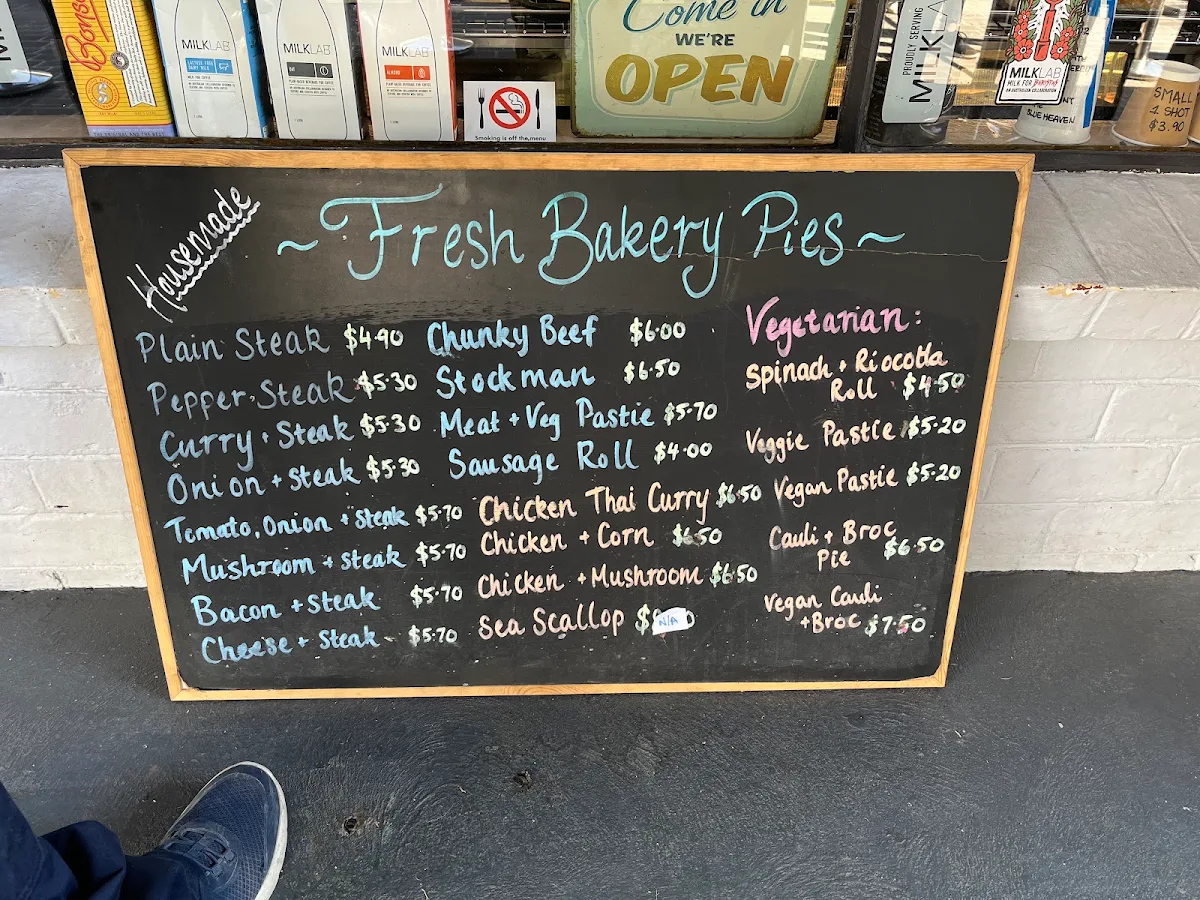 Bonso
MILKLAB
LACTOSE FREE
DAIRY MILK
MILKLAB
OAT
MILKLAB
ALMOND
Smoking is off the menu
Come in
WE'RE
OPEN
PROUDLY SERVING
MILKLA
MILKLAB
MILK FOR Baristas
BLUE HEAVEN
SMALL
1 SHOT
$3.90
Housemade
~ Fresh Bakery Pies ~
Plain Steak $4.90
Pepper Steak $5.30
Curry + Steak $5.30
Onion + Steak $5.30
Tomato, Onion + Steak $5.70
Mushroom + Steak $5.70
Bacon + Steak $5.70
Cheese + Steak $5.70
Chunky Beef $6.00
Stockman $6.50
Meat + Veg Pastie $5.70
Sausage Roll $4.00
Chicken Thai Curry $6.50
Chicken + Corn $6.50
Chicken + Mushroom $6.50
Sea Scallop $ N/A
Vegetarian:
Spinach + Riocotta
Roll $4.50
Veggie Pastie $5.20
Vegan Pastie $5.20
Cauli + Broc
Pie $6.50
Vegan Cauli
+Broc $7.50